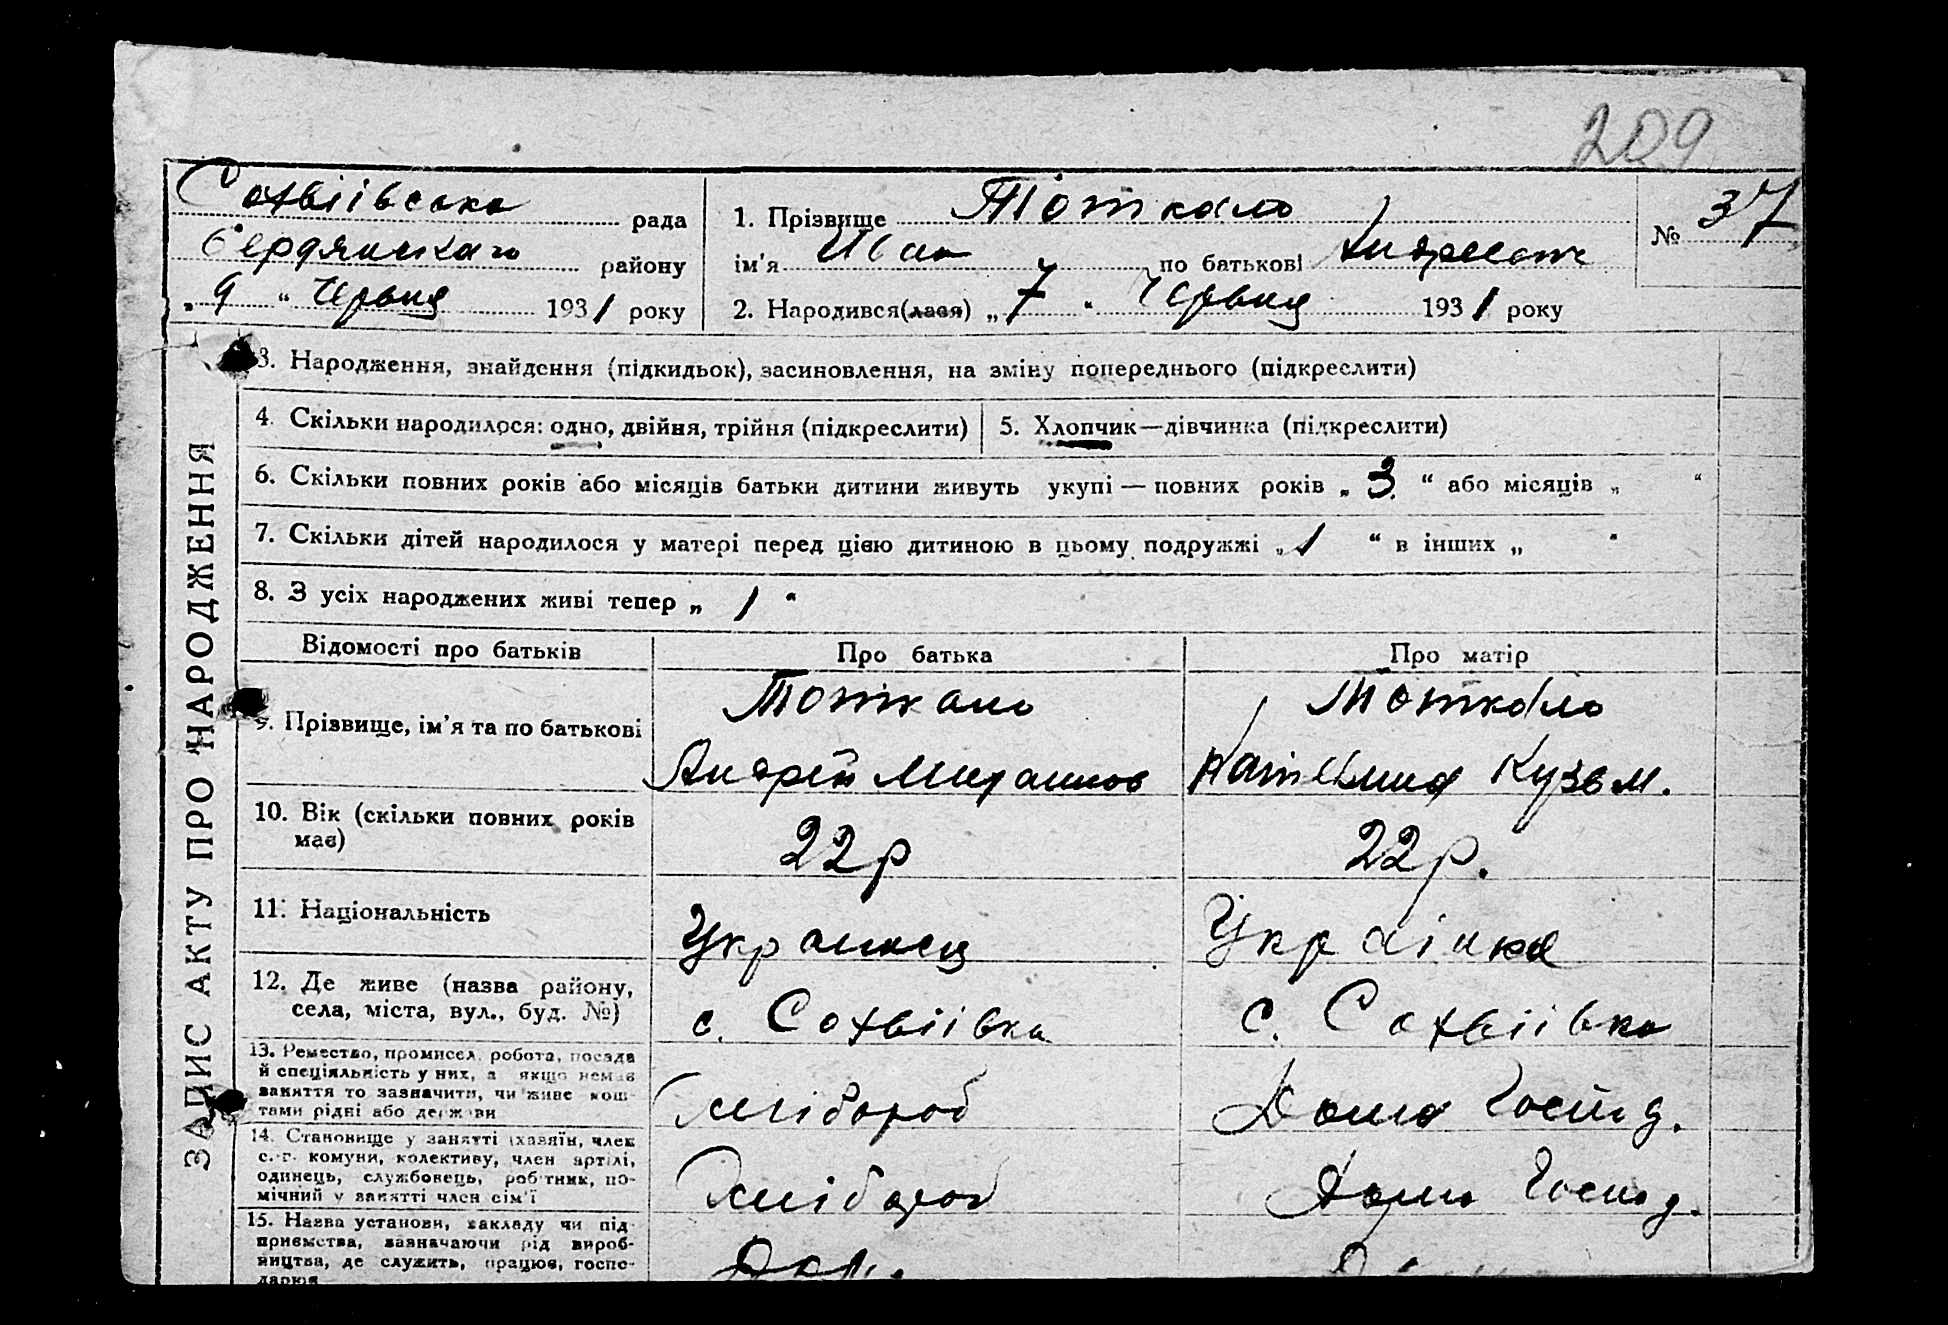 209
Софіївська рада
Бердянського району
„ 9 “ Червня 1931 року
1. Прізвище Тоткало
ім'я Иван по батькові Андреевич
2. Народився(лася) „ 7 “ Червня 1931 року
№ 37
ЗАПИС АКТУ ПРО НАРОДЖЕННЯ
3. Народження, знайдення (підкидьок), засиновлення, на зміну попереднього (підкреслити)
4. Скільки народилося: одно, двійня, трійня (підкреслити)
5. Хлопчик—дівчинка (підкреслити)
6. Скільки повних років або місяців батьки дитини живуть укупі — повних років „ 3 “ або місяців „ “
7. Скільки дітей народилося у матері перед цією дитиною в цьому подружжі „ 1 “ в інших „ “
8. З усіх народжених живі тепер „ 1 “
Відомості про батьків Про батька Про матір
9. Прізвище, ім'я та по батькові
Тоткало
Андрій
Тоткало
Кузьм.
10. Вік (скільки повних років
має)
22р
22р.
11. Національність
Украинец
Українка
12. Де живе (назва району,
села, міста, вул., буд. №)
с. Софіївка
с. Софіївка
13. Ремество, промисел, робота, посада
й спеціяльність у них, а якщо немає
заняття то зазначити, чи живе кош-
тами рідні або держави
хлібороб
Дома Госпид.
14. Становище у занятті (хазяїн, член
с.-г. комуни, колективу, член артілі,
одинець, службовець, робітник, по-
мічний у занятті член сім'ї
хлібороб
Дома Госпид.
15. Назва установи, закладу чи під-
приємства, зазначаючи рід вироб-
ництва, де служить, працює, госпо-
дарює